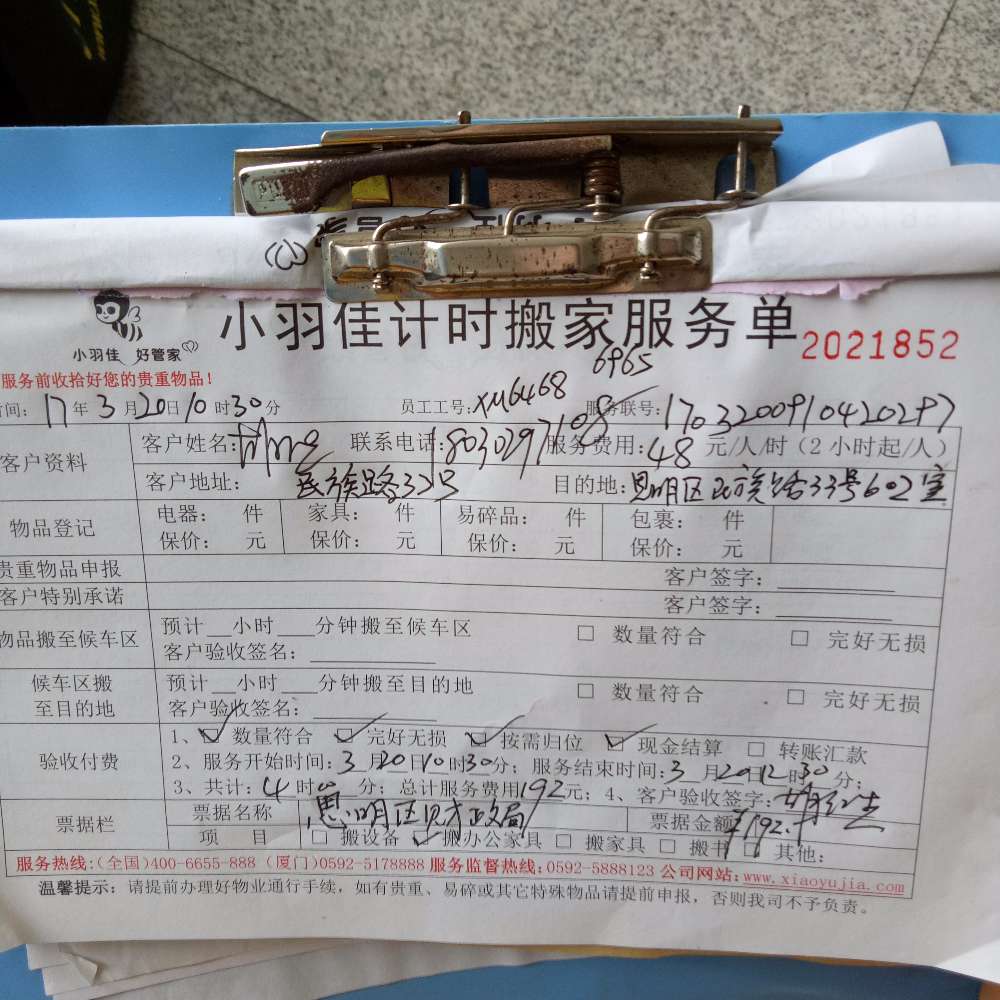 小羽佳 好管家
小羽佳计时搬家服务单
2021852
服务前收拾好您的贵重物品!
间: 17年3月20日10时30分 员工工号: XM6468 6965 服务联号: 1703200910420297
客户资料
客户姓名: 联系电话: 18030297108 服务费用: 48元/人/时(2小时起/人)
客户地址: 民族路32号 目的地: 思明区民族路33号602室
物品登记
电器: 件 家具: 件 易碎品: 件 包裹: 件
保价: 元 保价: 元 保价: 元 保价: 元
贵重物品申报 客户签字:
客户特别承诺 客户签字:
物品搬至候车区
预计__小时___分钟搬至候车区 □ 数量符合 □ 完好无损
客户验收签名:
候车区搬
至目的地
预计__小时___分钟搬至目的地 □ 数量符合 □ 完好无损
客户验收签名:
验收付费
1、☑ 数量符合 ☑ 完好无损 ☑ 按需归位 ☑ 现金结算 □ 转账汇款
2、服务开始时间: 3月20日10时30分; 服务结束时间: 3月20日12时30分;
3、共计: 4时0分; 总计服务费用192元; 4、客户验收签字:
票据栏
票据名称 思明区财政局 票据金额 ¥192.
项 目 □ 搬设备 ☑ 搬办公家具 □ 搬家具 □ 搬书 □ 其他:
服务热线:(全国)400-6655-888 (厦门)0592-5178888 服务监督热线:0592-5888123 公司网站:www.xiaoyujia.com
温馨提示: 请提前办理好物业通行手续, 如有贵重、易碎或其它特殊物品请提前申报, 否则我司不予负责。